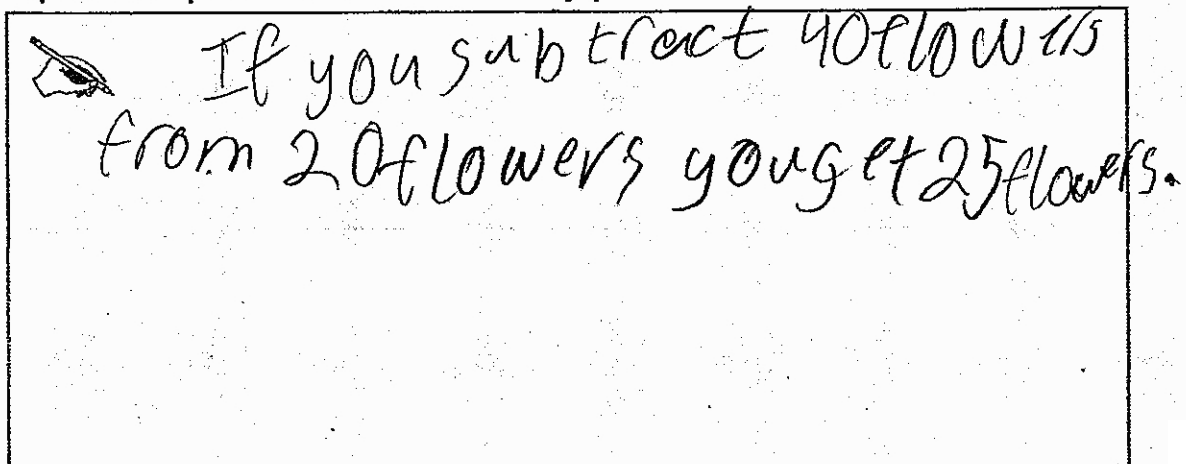 If you subtract 40 flowers
from 20 flowers you get 25 flowers.